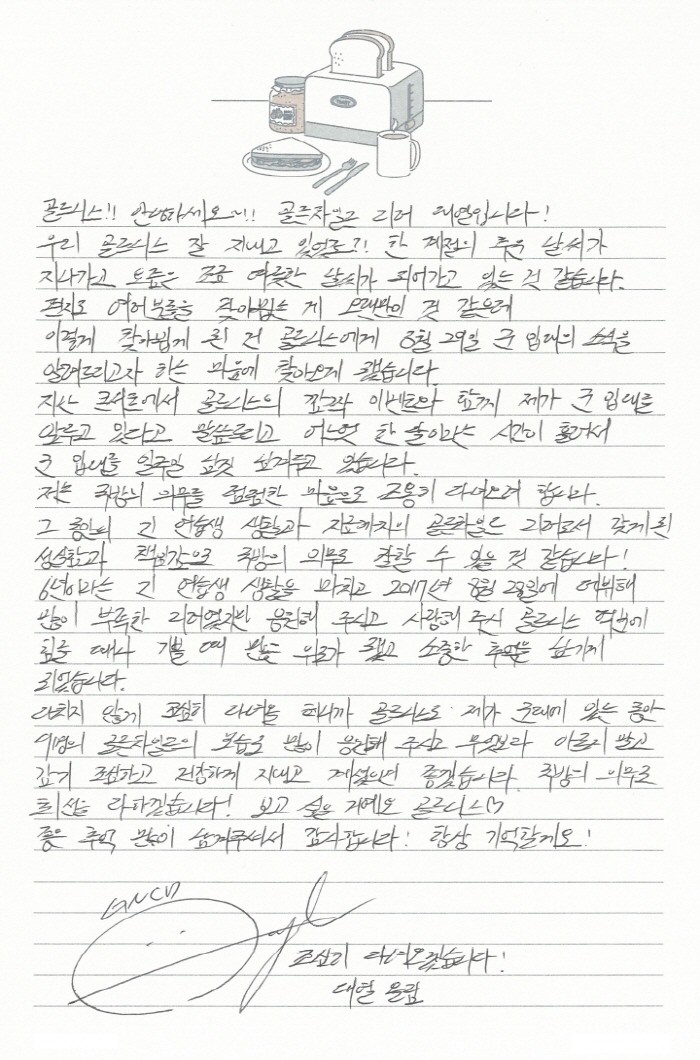 골드니스!! 안녕하세요~!! 골든차일드 리더 대열입니다!
우리 골드니스 잘 지내고 있었죠?! 한 계절의 추운 날씨가
지나가고 요즘은 조금 따뜻한 날씨가 되어가고 있는 것 같습니다.
편지로 여러분들을 찾아뵙는 게 오랜만인 것 같은데
이렇게 찾아뵙게 된 건 골드니스에게 3월 29일 군 입대의 소식을
알려드리고자 하는 마음에 찾아오게 됐습니다.
지난 콘서트에서 골드니스의 깜짝 이벤트와 함께 제가 군 입대를
앞두고 있다고 말씀드리고 어느덧 한 달이라는 시간이 흘러서
군 입대를 일주일 남짓 남겨두고 있습니다.
저는 국방의 의무를 덤덤한 마음으로 조용히 다녀오려 합니다.
그 동안의 긴 연습생 생활과 지금까지의 골든차일드 리더로서 갖게 된
성실함과 책임감으로 국방의 의무도 잘할 수 있을 것 같습니다!
6년이라는 긴 연습생 생활을 마치고 2017년 8월 28일에 데뷔해
많이 부족한 리더였지만 응원해 주시고 사랑해 주신 골드니스 덕분에
힘들 때나 기쁠 때 많은 위로가 됐고 소중한 추억들을 남기게
되었습니다.
다치지 않게 조심히 다녀올 테니까 골드니스도 제가 군대에 있는 동안
9명의 골든차일드의 모습도 많이 응원해 주시고 무엇보다 아프지 말고
감기 조심하고 건강하게 지내고 계셨으면 좋겠습니다. 국방의 의무로
최선을 다하겠습니다! 보고 싶을 거예요 골드니스♡
좋은 추억 많이 남겨주셔서 감사합니다! 항상 기억할게요!
GNCD
조심히 다녀오겠습니다!
대열 올림